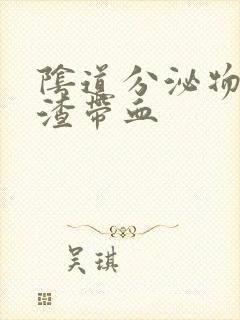 陰道分泌物
渣帶血
吳琪